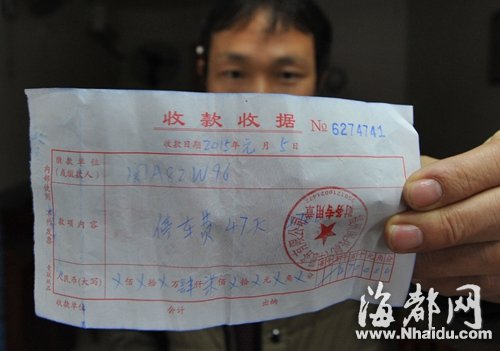 收款收据 № 6274741
收款日期 2015年元月5日
缴款单位
(或缴款人) A82W96
款项内容 停车费 47天
人民币(大写) ㄨ佰ㄨ拾ㄨ万肆仟柒佰ㄨ拾ㄨ元ㄨ角ㄨ分
收款单位 会计 出纳
财务专用章
海都网
www.Nhaidu.com